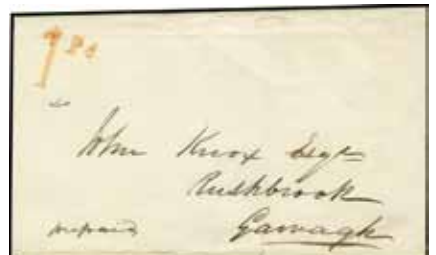 John Knox Esqr
Rushbrook
Garvagh
prepaid